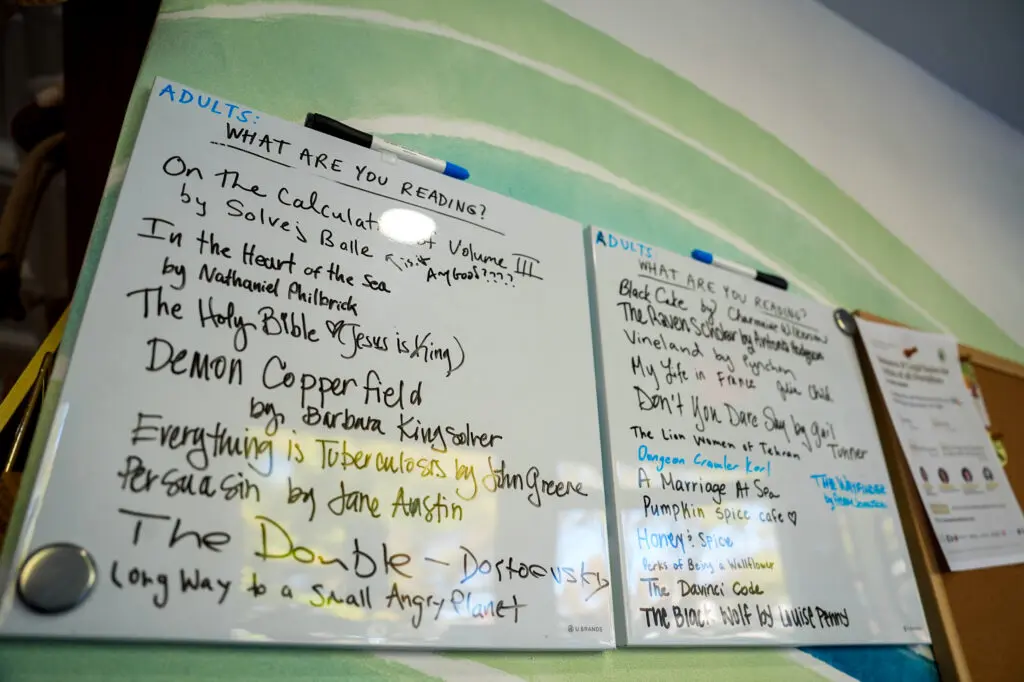 ADULTS:
WHAT ARE YOU READING?
On The Calculat of Volume III
by Solvej Balle is it Any Good????
In the Heart of the Sea
by Nathaniel Philbrick
The Holy Bible ♡ (Jesus is King)
DEMON Copperfield
by. Barbara Kingsolver
Everything is Tuberculosis by John Greene
Persuasin by Jane Austin
The Double - Dostoevsky
Long Way to a Small Angry Planet
U BRANDS
ADULTS
WHAT ARE YOU READING?
Black Cake by Charmaine Wilkerson
The Raven Scholar by Antonia Hodgson
Vineland by Pynchon
My Life in France Julia Child
Don't You Dare Say by Gail
Tunner
The Lion Women of Tehran
Dungeon Crawler Karl
A Marriage At Sea
THE WAYFINDER
by
Pumpkin Spice cafe ♡
Honey & Spice
Perks of Being a Wallflower
The Davinci Code
The Black Wolf by Louise Penny